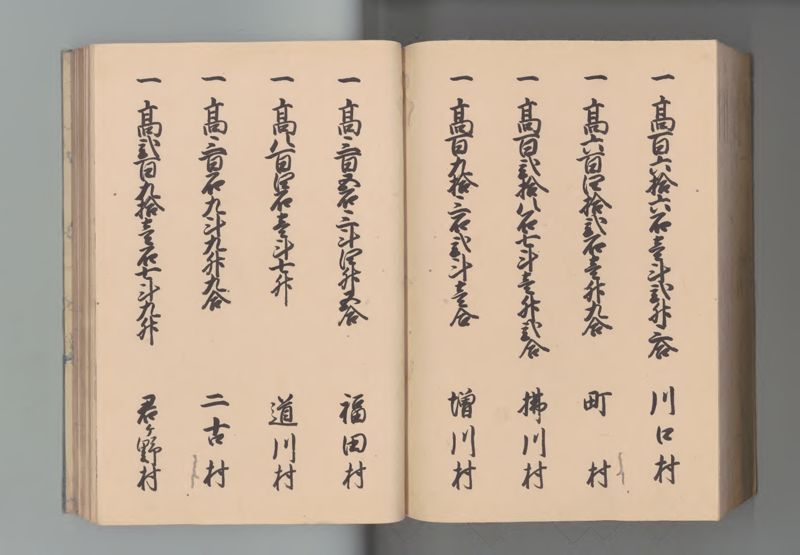 一高百六拾六石壱斗弐升六合 川口村
一高六百四拾弐石壱升九合 町村
一高百弐拾八石七斗壱升弐合 拂川村
一高百九拾三石弐斗壱合 増川村
一高三百五石三斗四升五合 福田村
一高八百四石壱斗七升 道川村
一高三百石九斗九升九合 二古村
一高弐百九拾壱石七斗九升 君ケ野村